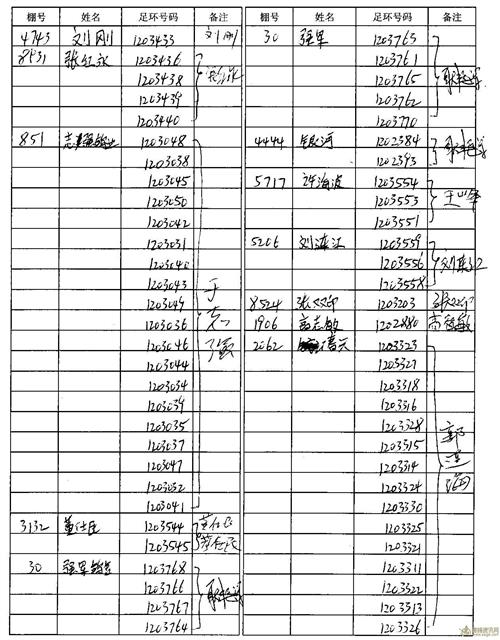 棚号 姓名 足环号码 备注
4743 刘刚 1203433 刘刚
8931 张红永 1203436
1203438
1203439
1203440
851 1203048
1203038
1203045
1203050
1203042
1203031
1203040
1203043
1203049
1203036
1203046
1203044
1203034
1203039
1203035
1203037
1203047
1203032
1203041
于志强
3132 董仕民 1203544 董仕民
1203545 董仕民
30 强军 1203768
1203766
1203767
1203764
棚号 姓名 足环号码 备注
30 强军 1203763
1203761
1203765
1203762
1203770
4444 银河 1202384
1202393
5717 许海波 1203554
1203553
1203551
5206 刘连江 1203559
1203556
1203558
8524 张双印 1203203 张双印
1906 高志敏 1202880 高志敏
2062 1203323
1203327
1203318
1203316
1203328
1203315
1203314
1203324
1203330
1203325
1203321
1203311
1203322
1203313
1203326
郭连海